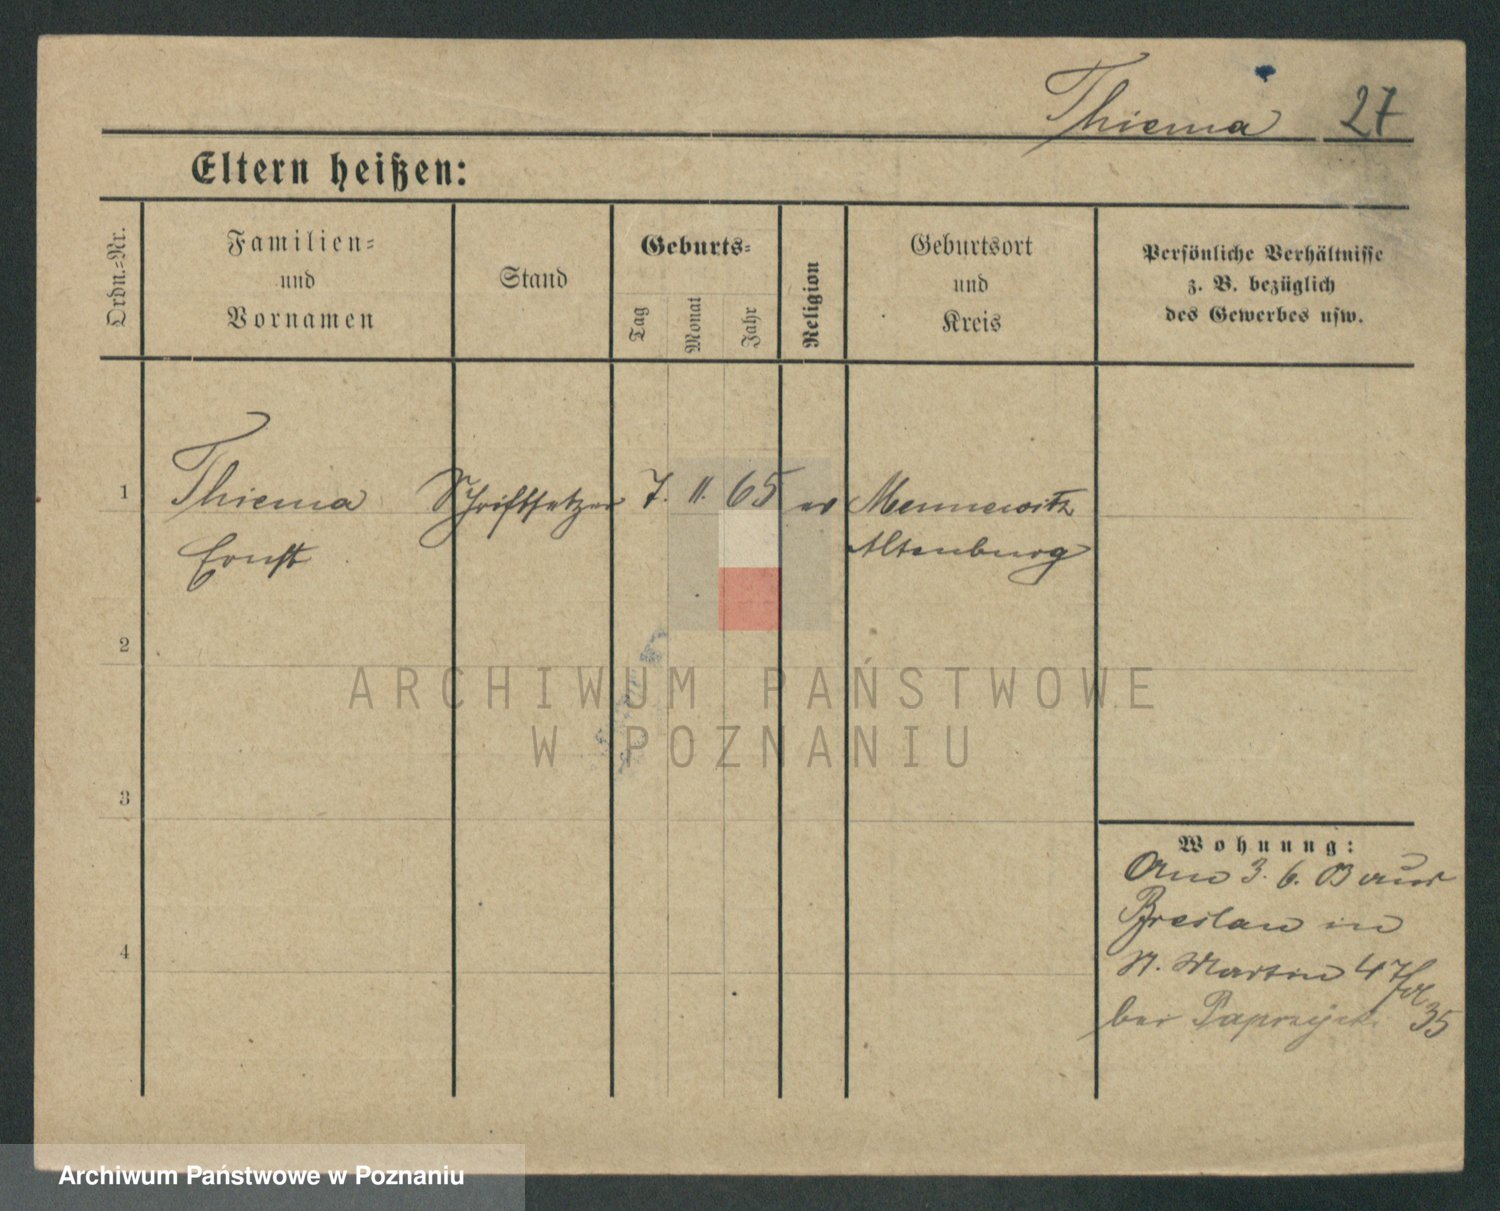 Thiema 27
Eltern heißen:
Ordn.=Nr.
Familien=
und
Vornamen
Stand
Geburts=
Tag
Monat
Jahr
Religion
Geburtsort
und
Kreis
Persönliche Verhältnisse
z. B. bezüglich
des Gewerbes usw.
1 Thiema Schriftsetzer 7. 11. 65 ev Mennewitz
Ernst Altenburg
2
3
4
Wohnung:
Am 3. 6. 03 aus
Breslau in
St. Martin 47
bei 35
ARCHIWUM PAŃSTWOWE
W POZNANIU
Archiwum Państwowe w Poznaniu